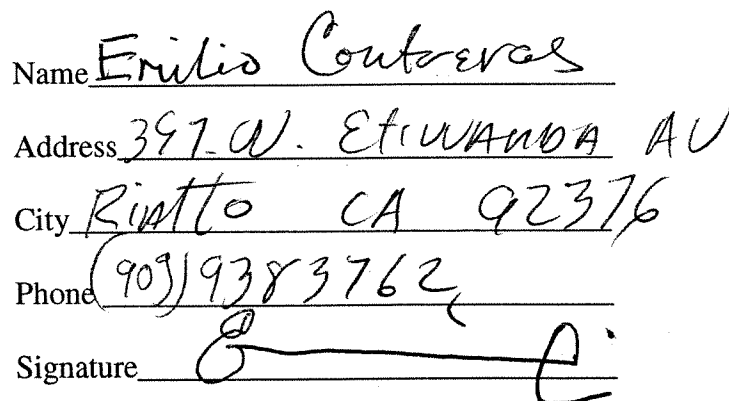 Name Emilio Contreras
Address 397 W. ETIWANDA AV
City Rialto CA 92376
Phone (909) 9383762
Signature